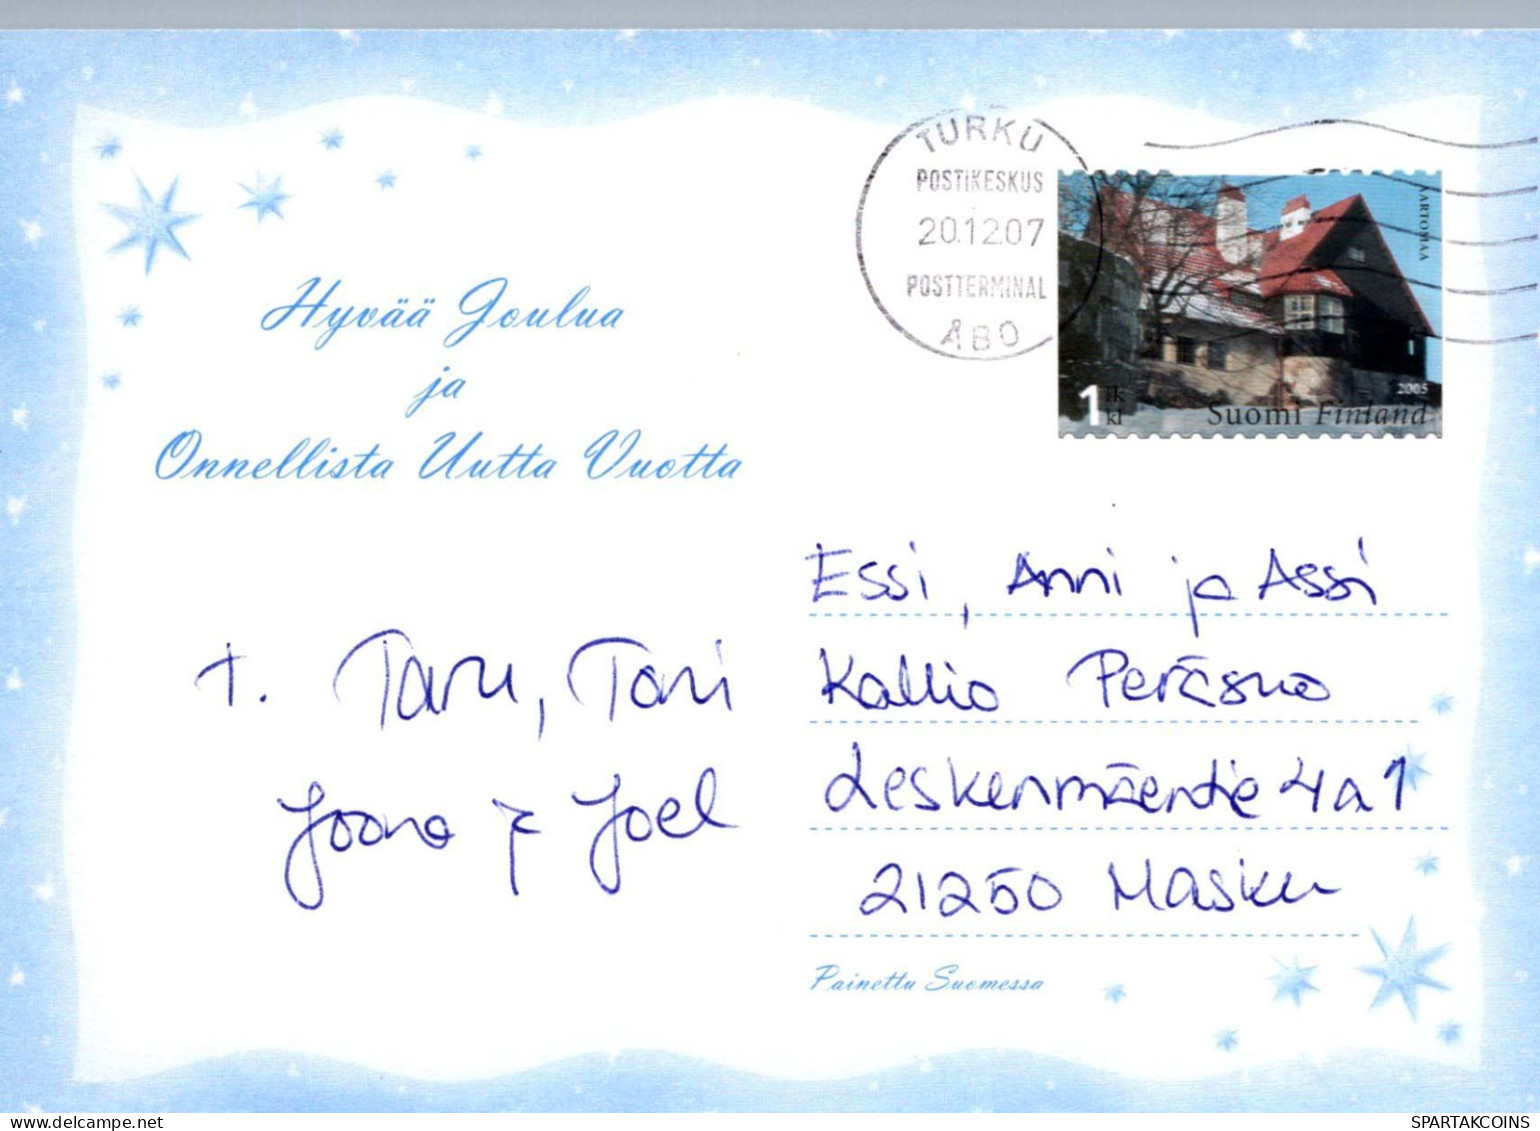 TURKU
POSTIKESKUS
20.12.07
POSTTERMINAL
ÅBO
AARTOMAA
1 lk
kl
2005
Suomi Finland
Hyvää Joulua
ja
Onnellista Uutta Vuotta
t. Taru, Toni
Joona ja Joel
Essi, Anni ja Assi
Kallio Peräsuo
Leskenmäentie 4 a 1
21250 Masku
Painettu Suomessa
delcampe.net
SPARTAKCOINS